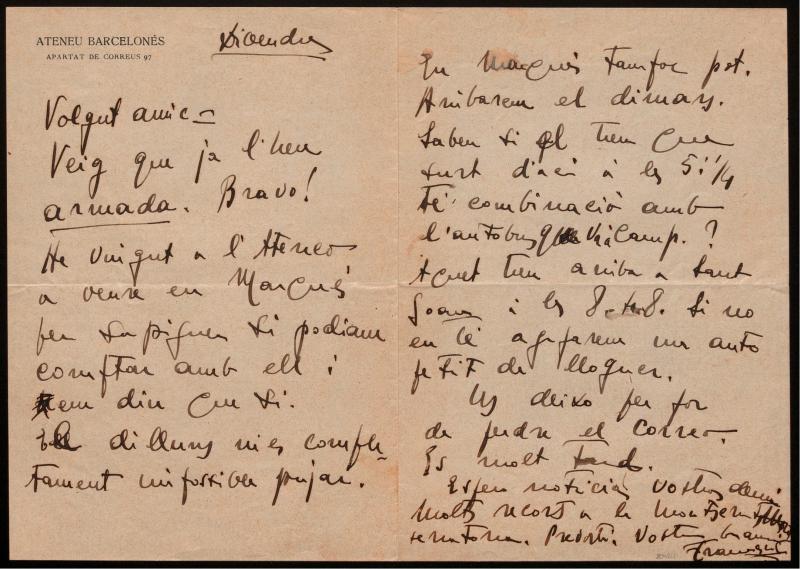 ATENEU BARCELONÉS
APARTAT DE CORREUS 97
Divendres
Volgut amic –
Veig que ja l'heu
armada. Bravo!
He vingut a l'Ateneo
a veure en Marqués
per sapiguer si podiam
comptar amb ell i
em diu que si.
El dilluns m'es comple-
tament impossible pujar.
En Marqués tampoc pot.
Arribarem el dimars.
Sabeu si el tren que
surt d'aci à les 5 i 1/4
té combinació amb
l'autobus que va à Camp.?
Aquet tren arriba a Sant
Joan à les 8. Si no
en té agafarem un auto
petit de lloguer.
Us deixo per por
de perdre el correo.
Es molt tard.
Espero noticias vostres demà
Molts recorts a la Montserrat
Vostre